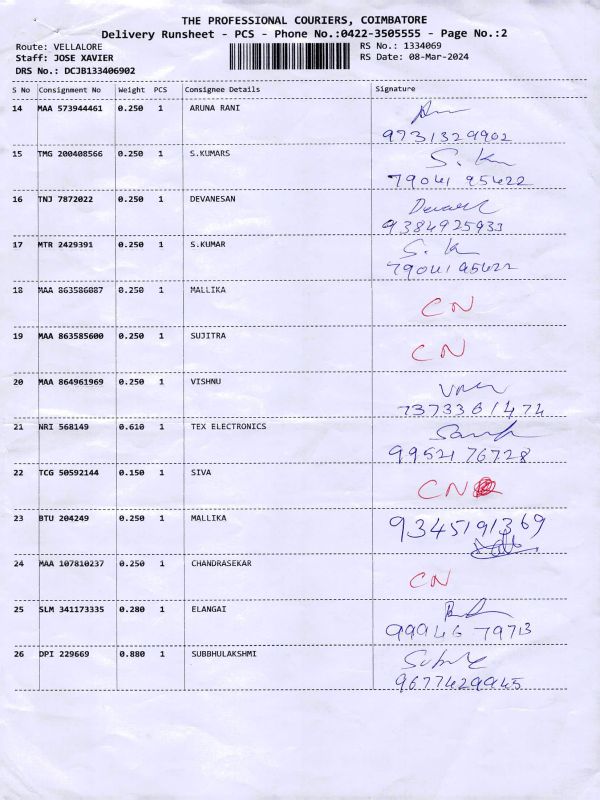 THE PROFESSIONAL COURIERS, COIMBATORE
Delivery Runsheet - PCS - Phone No.:0422-3505555 - Page No.:2
Route: VELLALORE RS No.: 1334069
Staff: JOSE XAVIER RS Date: 08-Mar-2024
DRS No.: DCJB133406902
S No Consignment No Weight PCS Consignee Details Signature
14 MAA 573944461 0.250 1 ARUNA RANI
9731329902
15 TMG 200408566 0.250 1 S.KUMARS S. K
79041 95422
16 TNJ 7872022 0.250 1 DEVANESAN
9384925933
17 MTR 2429391 0.250 1 S.KUMAR S. K
79041 95422
18 MAA 863586087 0.250 1 MALLIKA CN
19 MAA 863585600 0.250 1 SUJITRA CN
20 MAA 864961969 0.250 1 VISHNU
7373361474
21 NRI 568149 0.610 1 TEX ELECTRONICS
99521 76728
22 TCG 50592144 0.150 1 SIVA CN
23 BTU 204249 0.250 1 MALLIKA 9345191369
24 MAA 107810237 0.250 1 CHANDRASEKAR CN
25 SLM 341173335 0.280 1 ELANGAI
99946 79713
26 DPI 229669 0.880 1 SUBBHULAKSHMI
9677429945